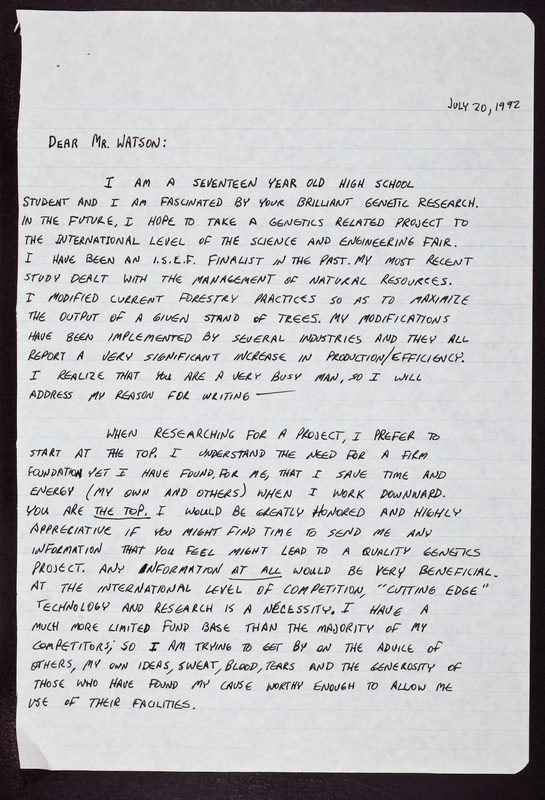 JULY 20, 1992
DEAR MR. WATSON:
I AM A SEVENTEEN YEAR OLD HIGH SCHOOL
STUDENT AND I AM FASCINATED BY YOUR BRILLIANT GENETIC RESEARCH.
IN THE FUTURE, I HOPE TO TAKE A GENETICS RELATED PROJECT TO
THE INTERNATIONAL LEVEL OF THE SCIENCE AND ENGINEERING FAIR.
I HAVE BEEN AN I.S.E.F. FINALIST IN THE PAST. MY MOST RECENT
STUDY DEALT WITH THE MANAGEMENT OF NATURAL RESOURCES.
I MODIFIED CURRENT FORESTRY PRACTICES SO AS TO MAXIMIZE
THE OUTPUT OF A GIVEN STAND OF TREES. MY MODIFICATIONS
HAVE BEEN IMPLEMENTED BY SEVERAL INDUSTRIES AND THEY ALL
REPORT A VERY SIGNIFICANT INCREASE IN PRODUCTION/EFFICIENCY.
I REALIZE THAT YOU ARE A VERY BUSY MAN, SO I WILL
ADDRESS MY REASON FOR WRITING —
WHEN RESEARCHING FOR A PROJECT, I PREFER TO
START AT THE TOP. I UNDERSTAND THE NEED FOR A FIRM
FOUNDATION YET I HAVE FOUND, FOR ME, THAT I SAVE TIME AND
ENERGY (MY OWN AND OTHERS) WHEN I WORK DOWNWARD.
YOU ARE THE TOP. I WOULD BE GREATLY HONORED AND HIGHLY
APPRECIATIVE IF YOU MIGHT FIND TIME TO SEND ME ANY
INFORMATION THAT YOU FEEL MIGHT LEAD TO A QUALITY GENETICS
PROJECT. ANY INFORMATION AT ALL WOULD BE VERY BENEFICIAL.
AT THE INTERNATIONAL LEVEL OF COMPETITION, "CUTTING EDGE"
TECHNOLOGY AND RESEARCH IS A NECESSITY. I HAVE A
MUCH MORE LIMITED FUND BASE THAN THE MAJORITY OF MY
COMPETITORS; SO I AM TRYING TO GET BY ON THE ADVICE OF
OTHERS, MY OWN IDEAS, SWEAT, BLOOD, TEARS AND THE GENEROSITY OF
THOSE WHO HAVE FOUND MY CAUSE WORTHY ENOUGH TO ALLOW ME
USE OF THEIR FACILITIES.